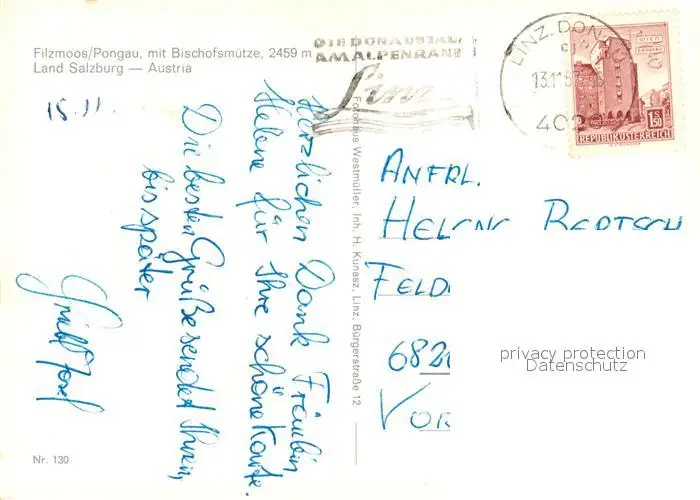 Filzmoos/Pongau, mit Bischofsmütze, 2459 m
Land Salzburg — Austria
15.11.
Herzlichen Dank Fräulein
Helene für Ihre schöne Karte.
Die besten Grüße sendet Ihnen,
bis später
Josef
Nr. 130
Fotohaus Westmüller, Inh. H. Kunasz, Linz, Bürgerstraße 12
DIE DONAUSTADT
AM ALPENRAND
Linz
LINZ, DONAU
13.11
REPUBLIK ÖSTERREICH
1.50
WIEN
ERDBERG
ANFRL.
HELENE
FELD
682
VOR
privacy protection
Datenschutz